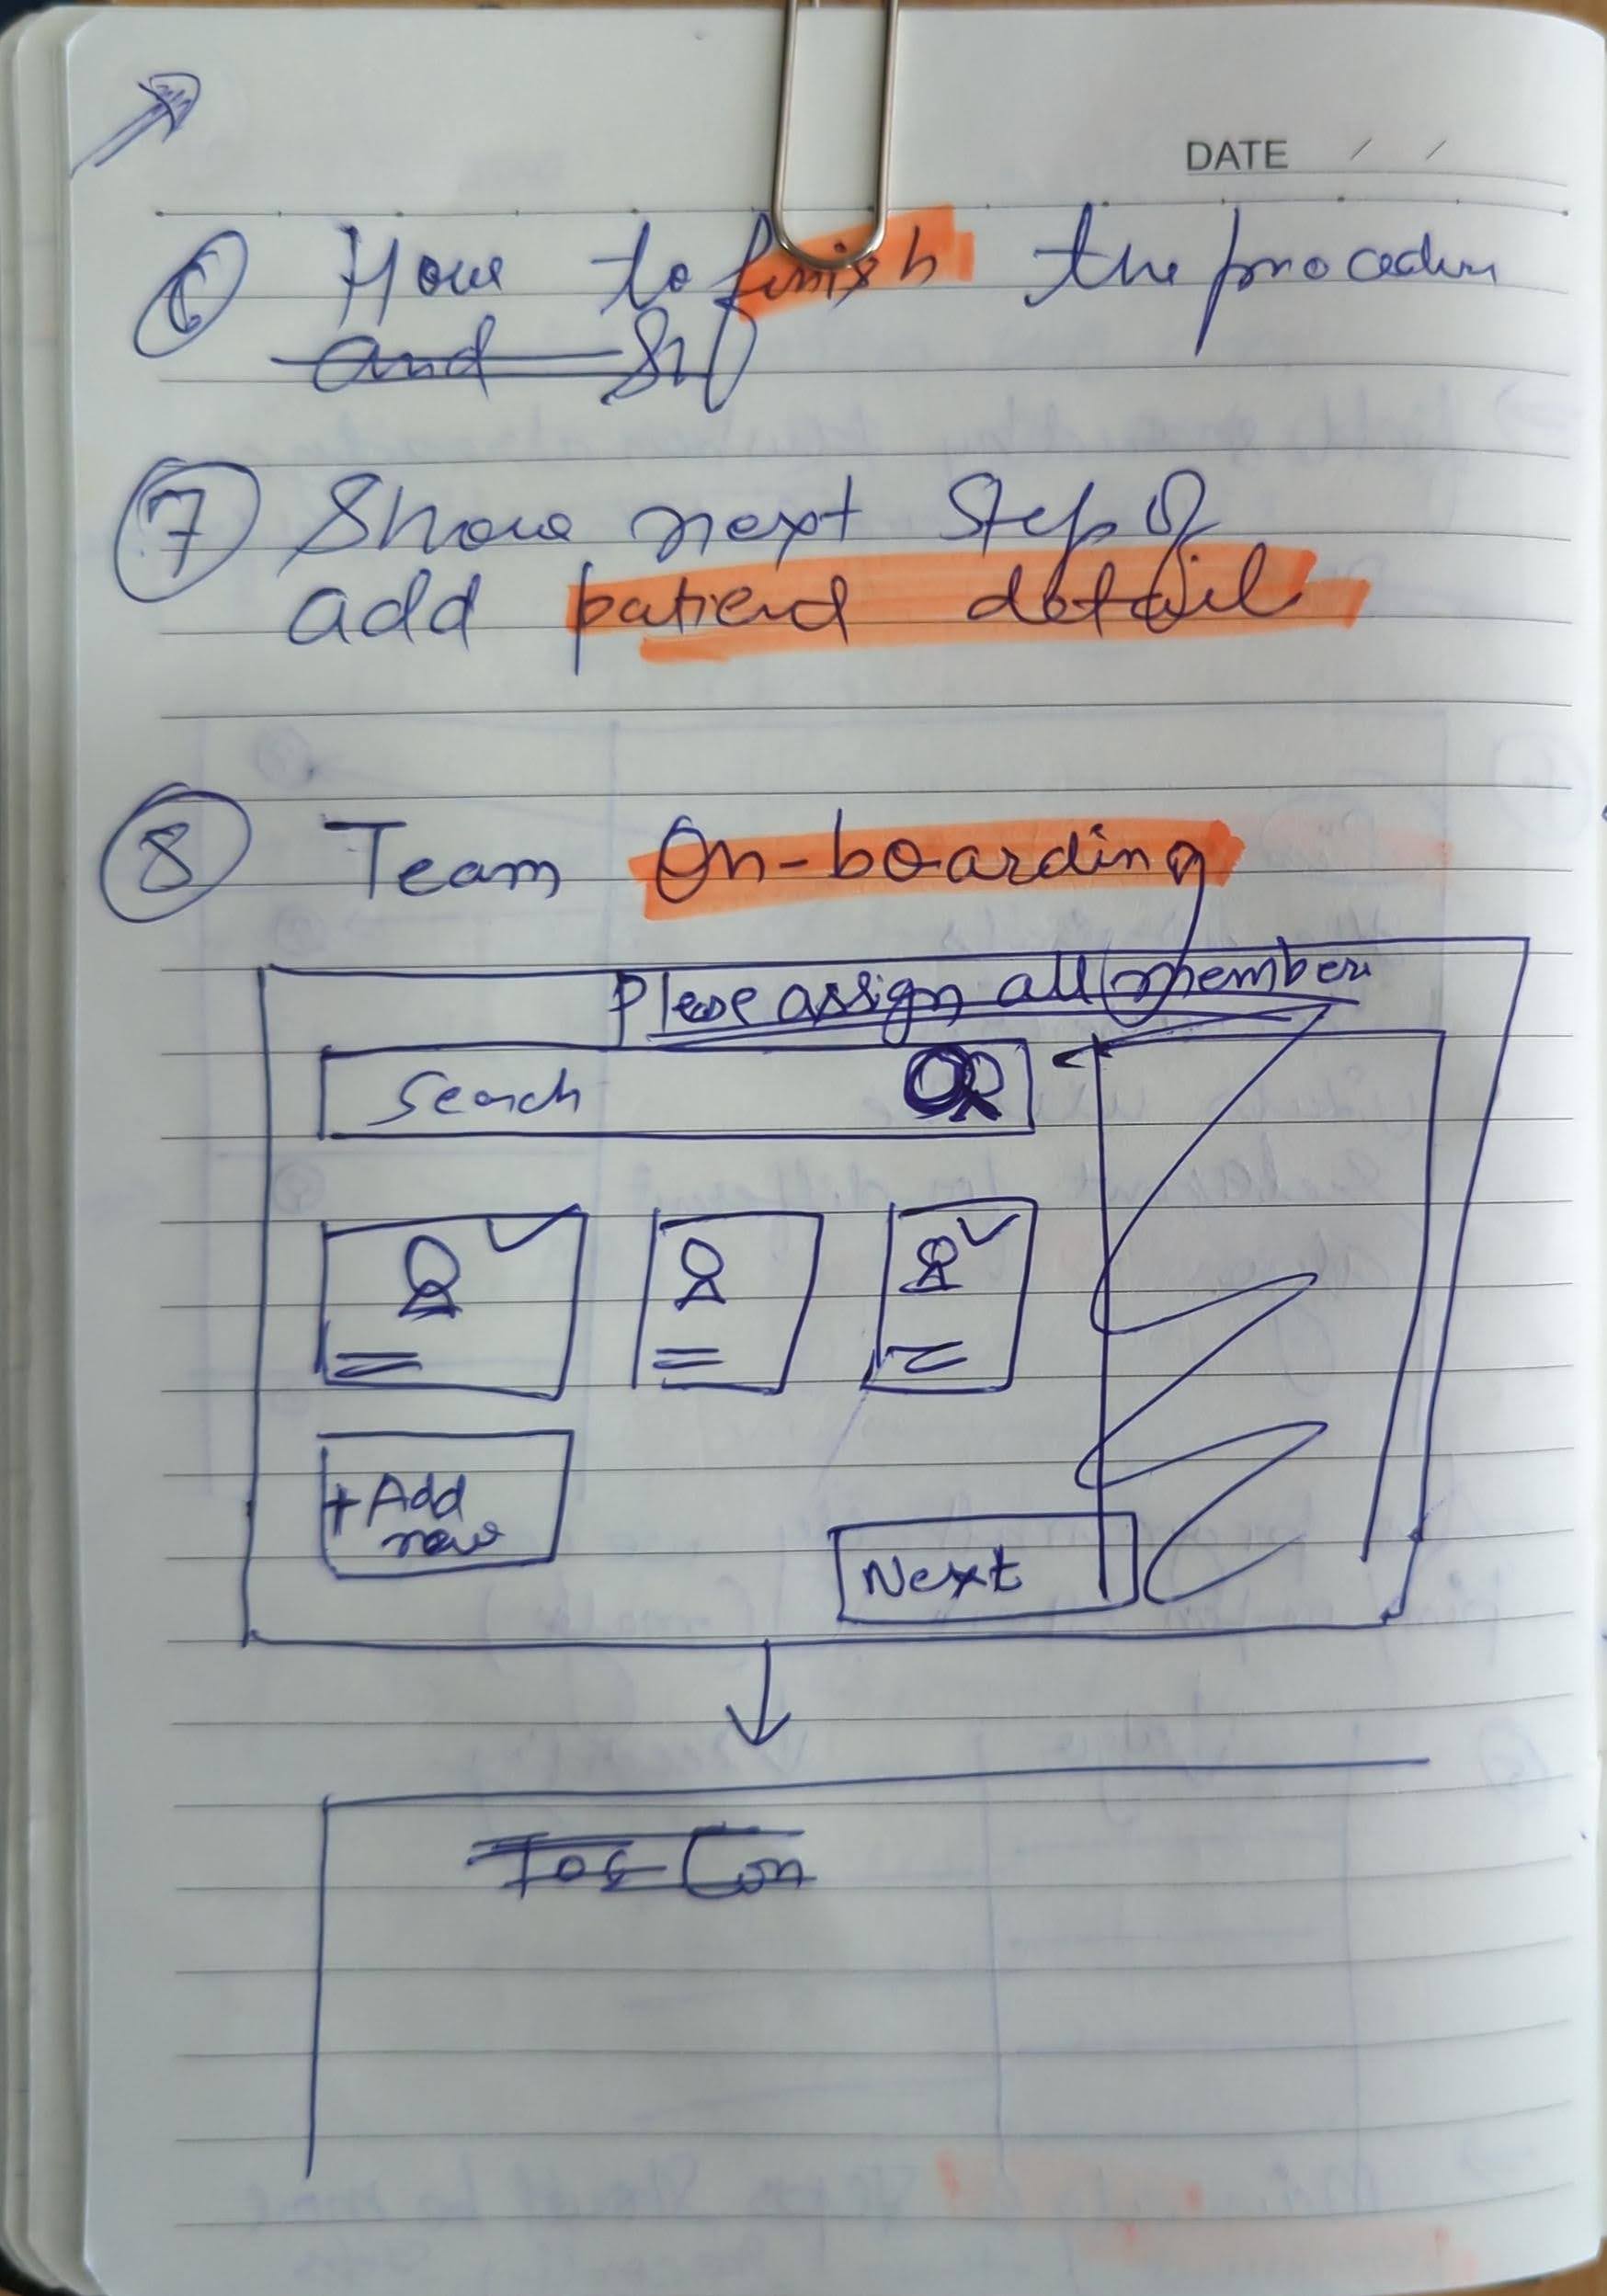 DATE / /
⑥ How to finish the procedure
and
⑦ Show next step of
add patient detail
⑧ Team On-boarding
Please assign all members
Search
+ Add
new
Next
Con